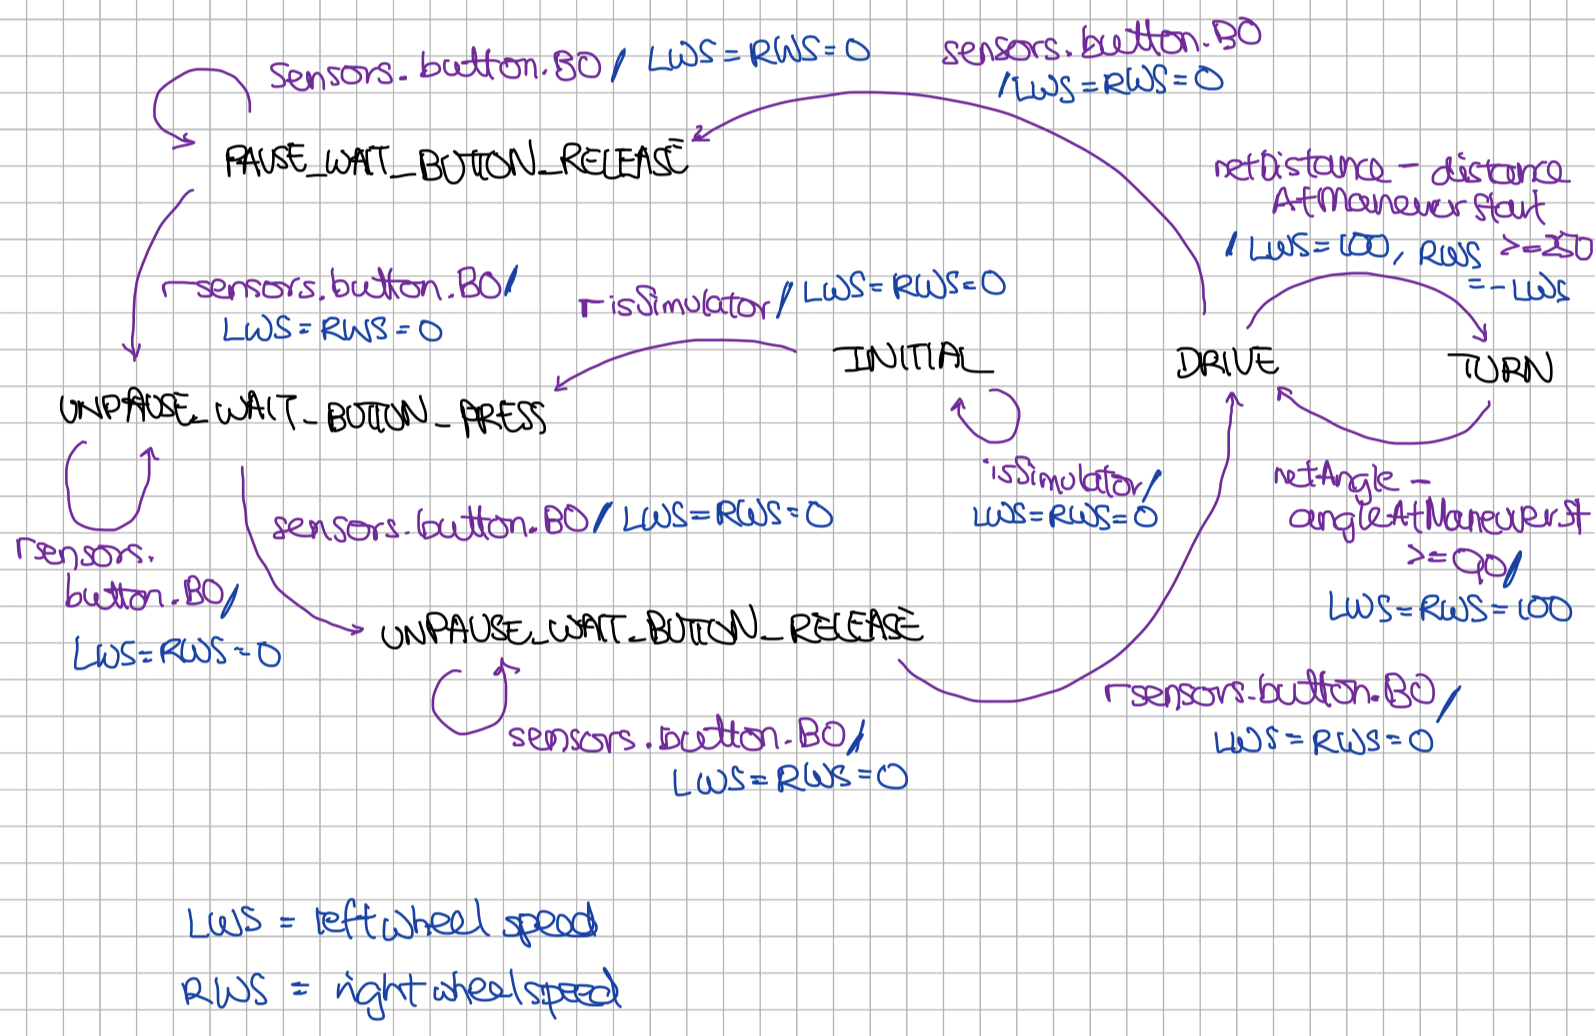 sensors.button.B0/ LWS=RWS=0
sensors.button.B0
/LWS=RWS=0
PAUSE_WAIT_BUTTON_RELEASE
netDistance - distance
AtManeuverStart
/ LWS=100, RWS >=250
=-LWS
¬sensors.button.B0/
LWS=RWS=0
¬isSimulator/ LWS=RWS=0
INITIAL
DRIVE
TURN
UNPAUSE_WAIT_BUTTON_PRESS
isSimulator/
LWS=RWS=0
netAngle -
angleAtManeuverSt
>=90/
LWS=RWS=100
sensors.button.B0/ LWS=RWS=0
¬sensors.
button.B0/
LWS=RWS=0
UNPAUSE_WAIT_BUTTON_RELEASE
¬sensors.button.B0/
LWS=RWS=0
sensors.button.B0/
LWS=RWS=0
LWS = left wheel speed
RWS = right wheel speed